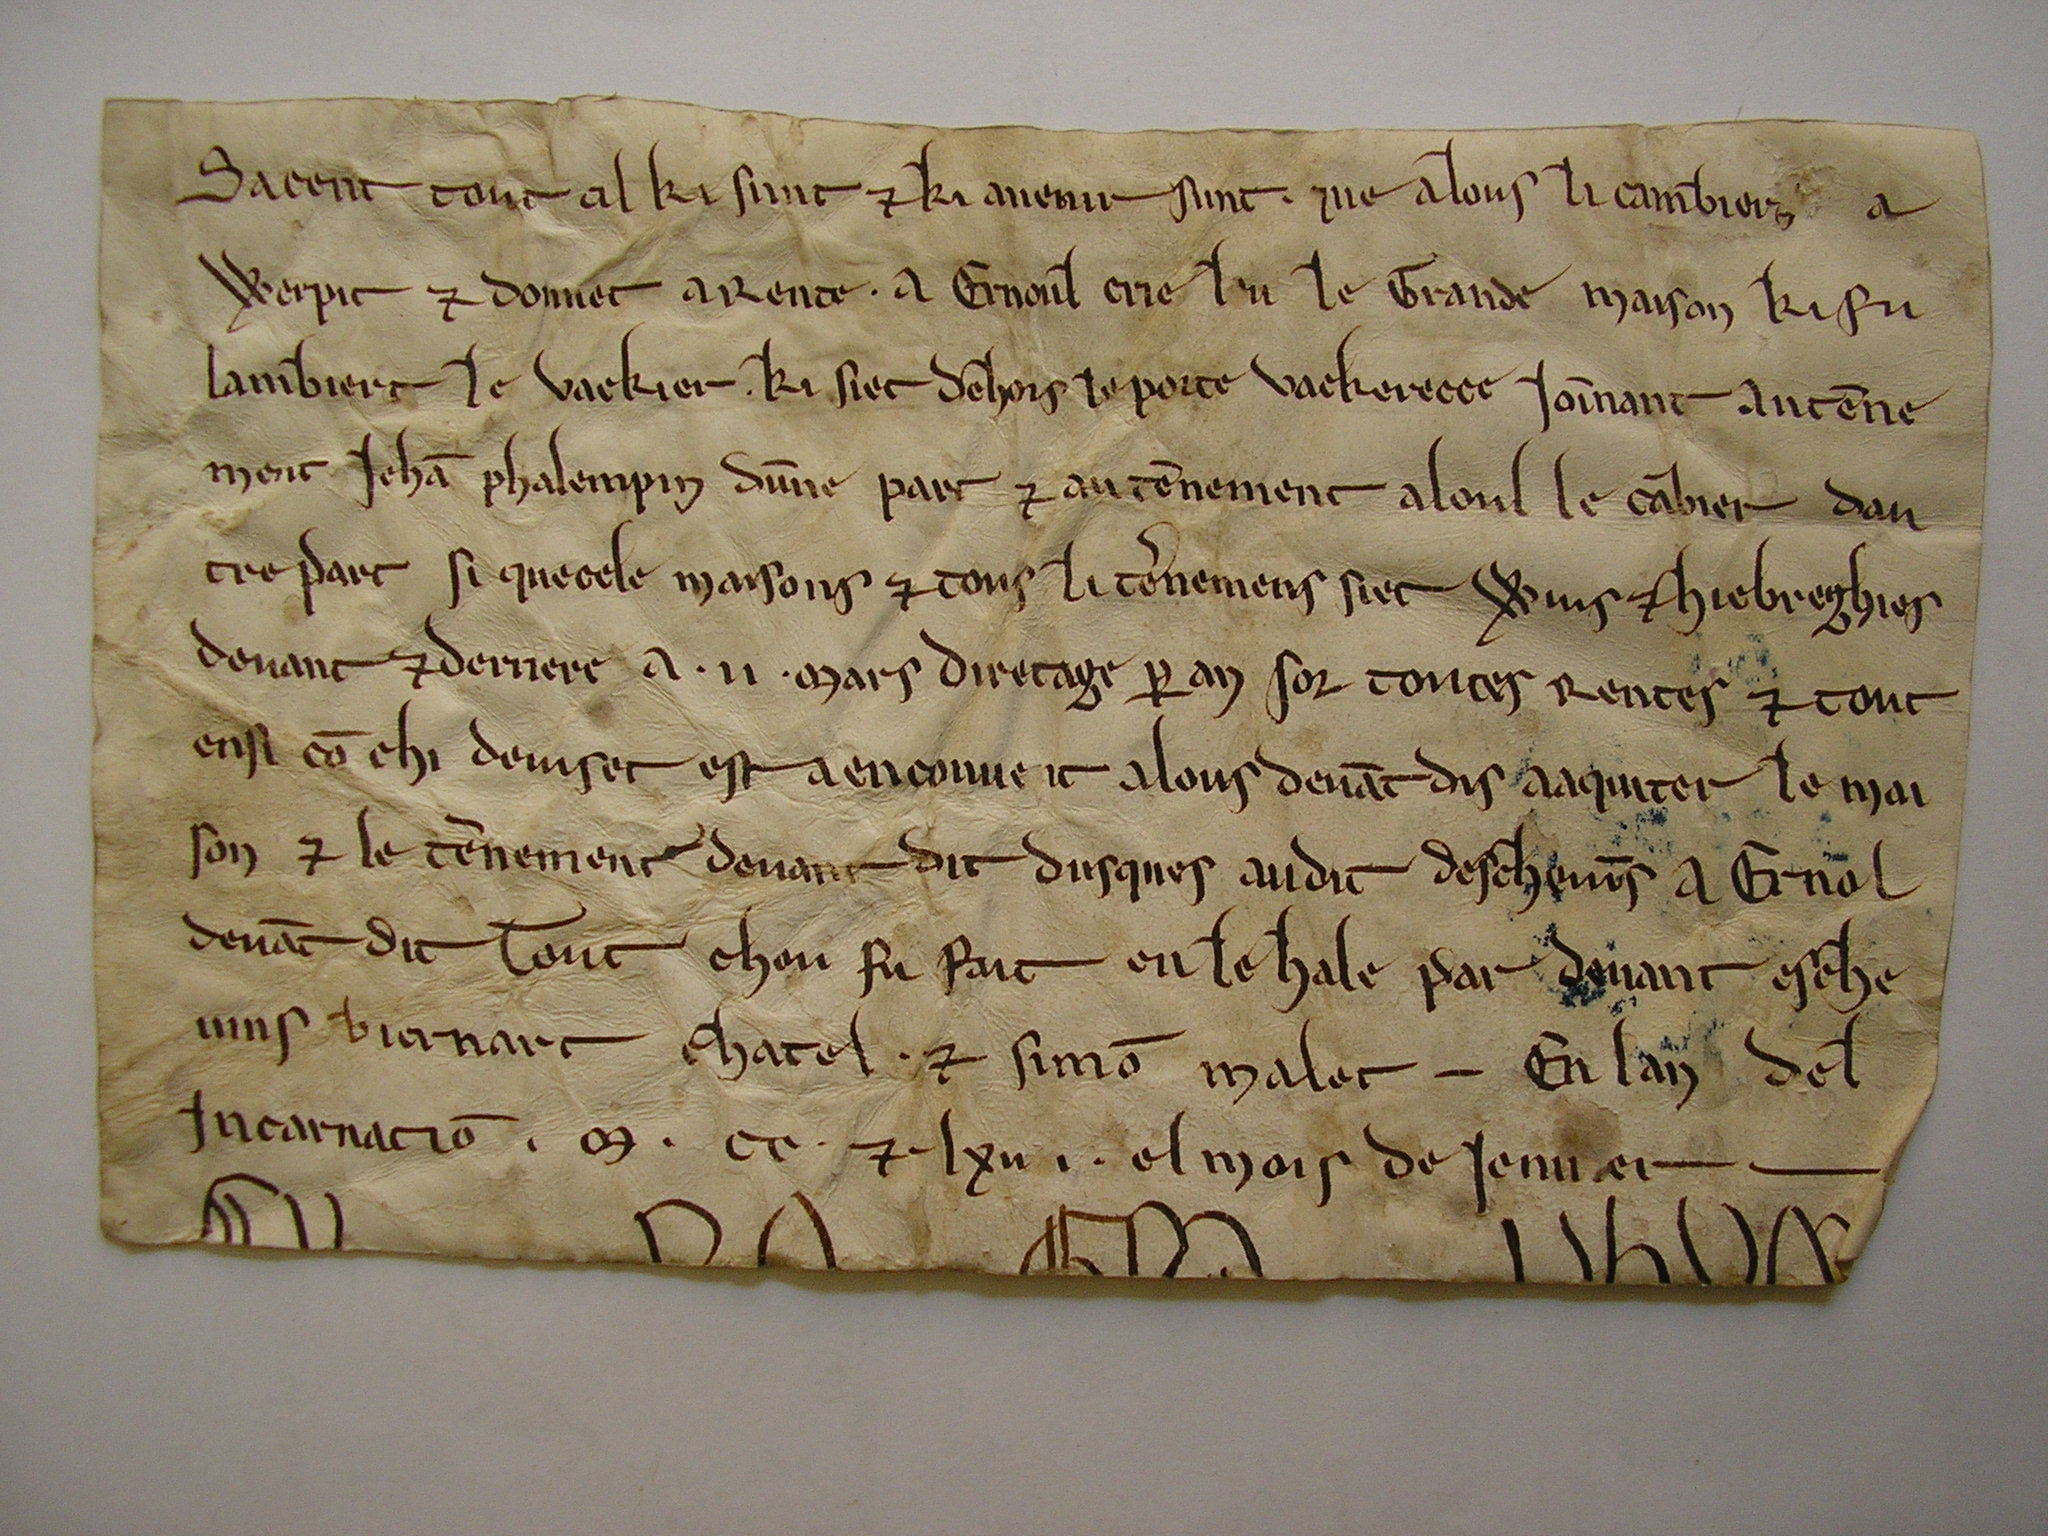 Sacent tout cil ki sunt ⁊ ki auenir sunt · que alous li cambiers a
Werpit ⁊ donnet a Rente · A Ernoul crie lu le Grande maison ki fu
lambiert le vackier · ki siet dehors le porte vackerece Joīnant au tēne
ment Jehā phalempin dūne part ⁊ au tēnement aloul le cābier dau
tre part si que cele maisons ⁊ tous li tēnemens siet Wuis ⁊ hiebreghies
deuant ⁊ derriere A · ii · mars diretage ꝑ an sor toutes Rentes ⁊ tout
ensi cō chi deuiset est a enconuent alous deuāt dis a aquiter le mai
son ⁊ le tēnement deuant dit dusques au dit descheuīs A Ernol
deuāt dit Tout chou fu fait en le hale par deuant esche
uins biernart chatel · ⁊ simō malet — En lan del
Incarnatiō · m · cc · ⁊ lxii i · el mois de Jenuier —